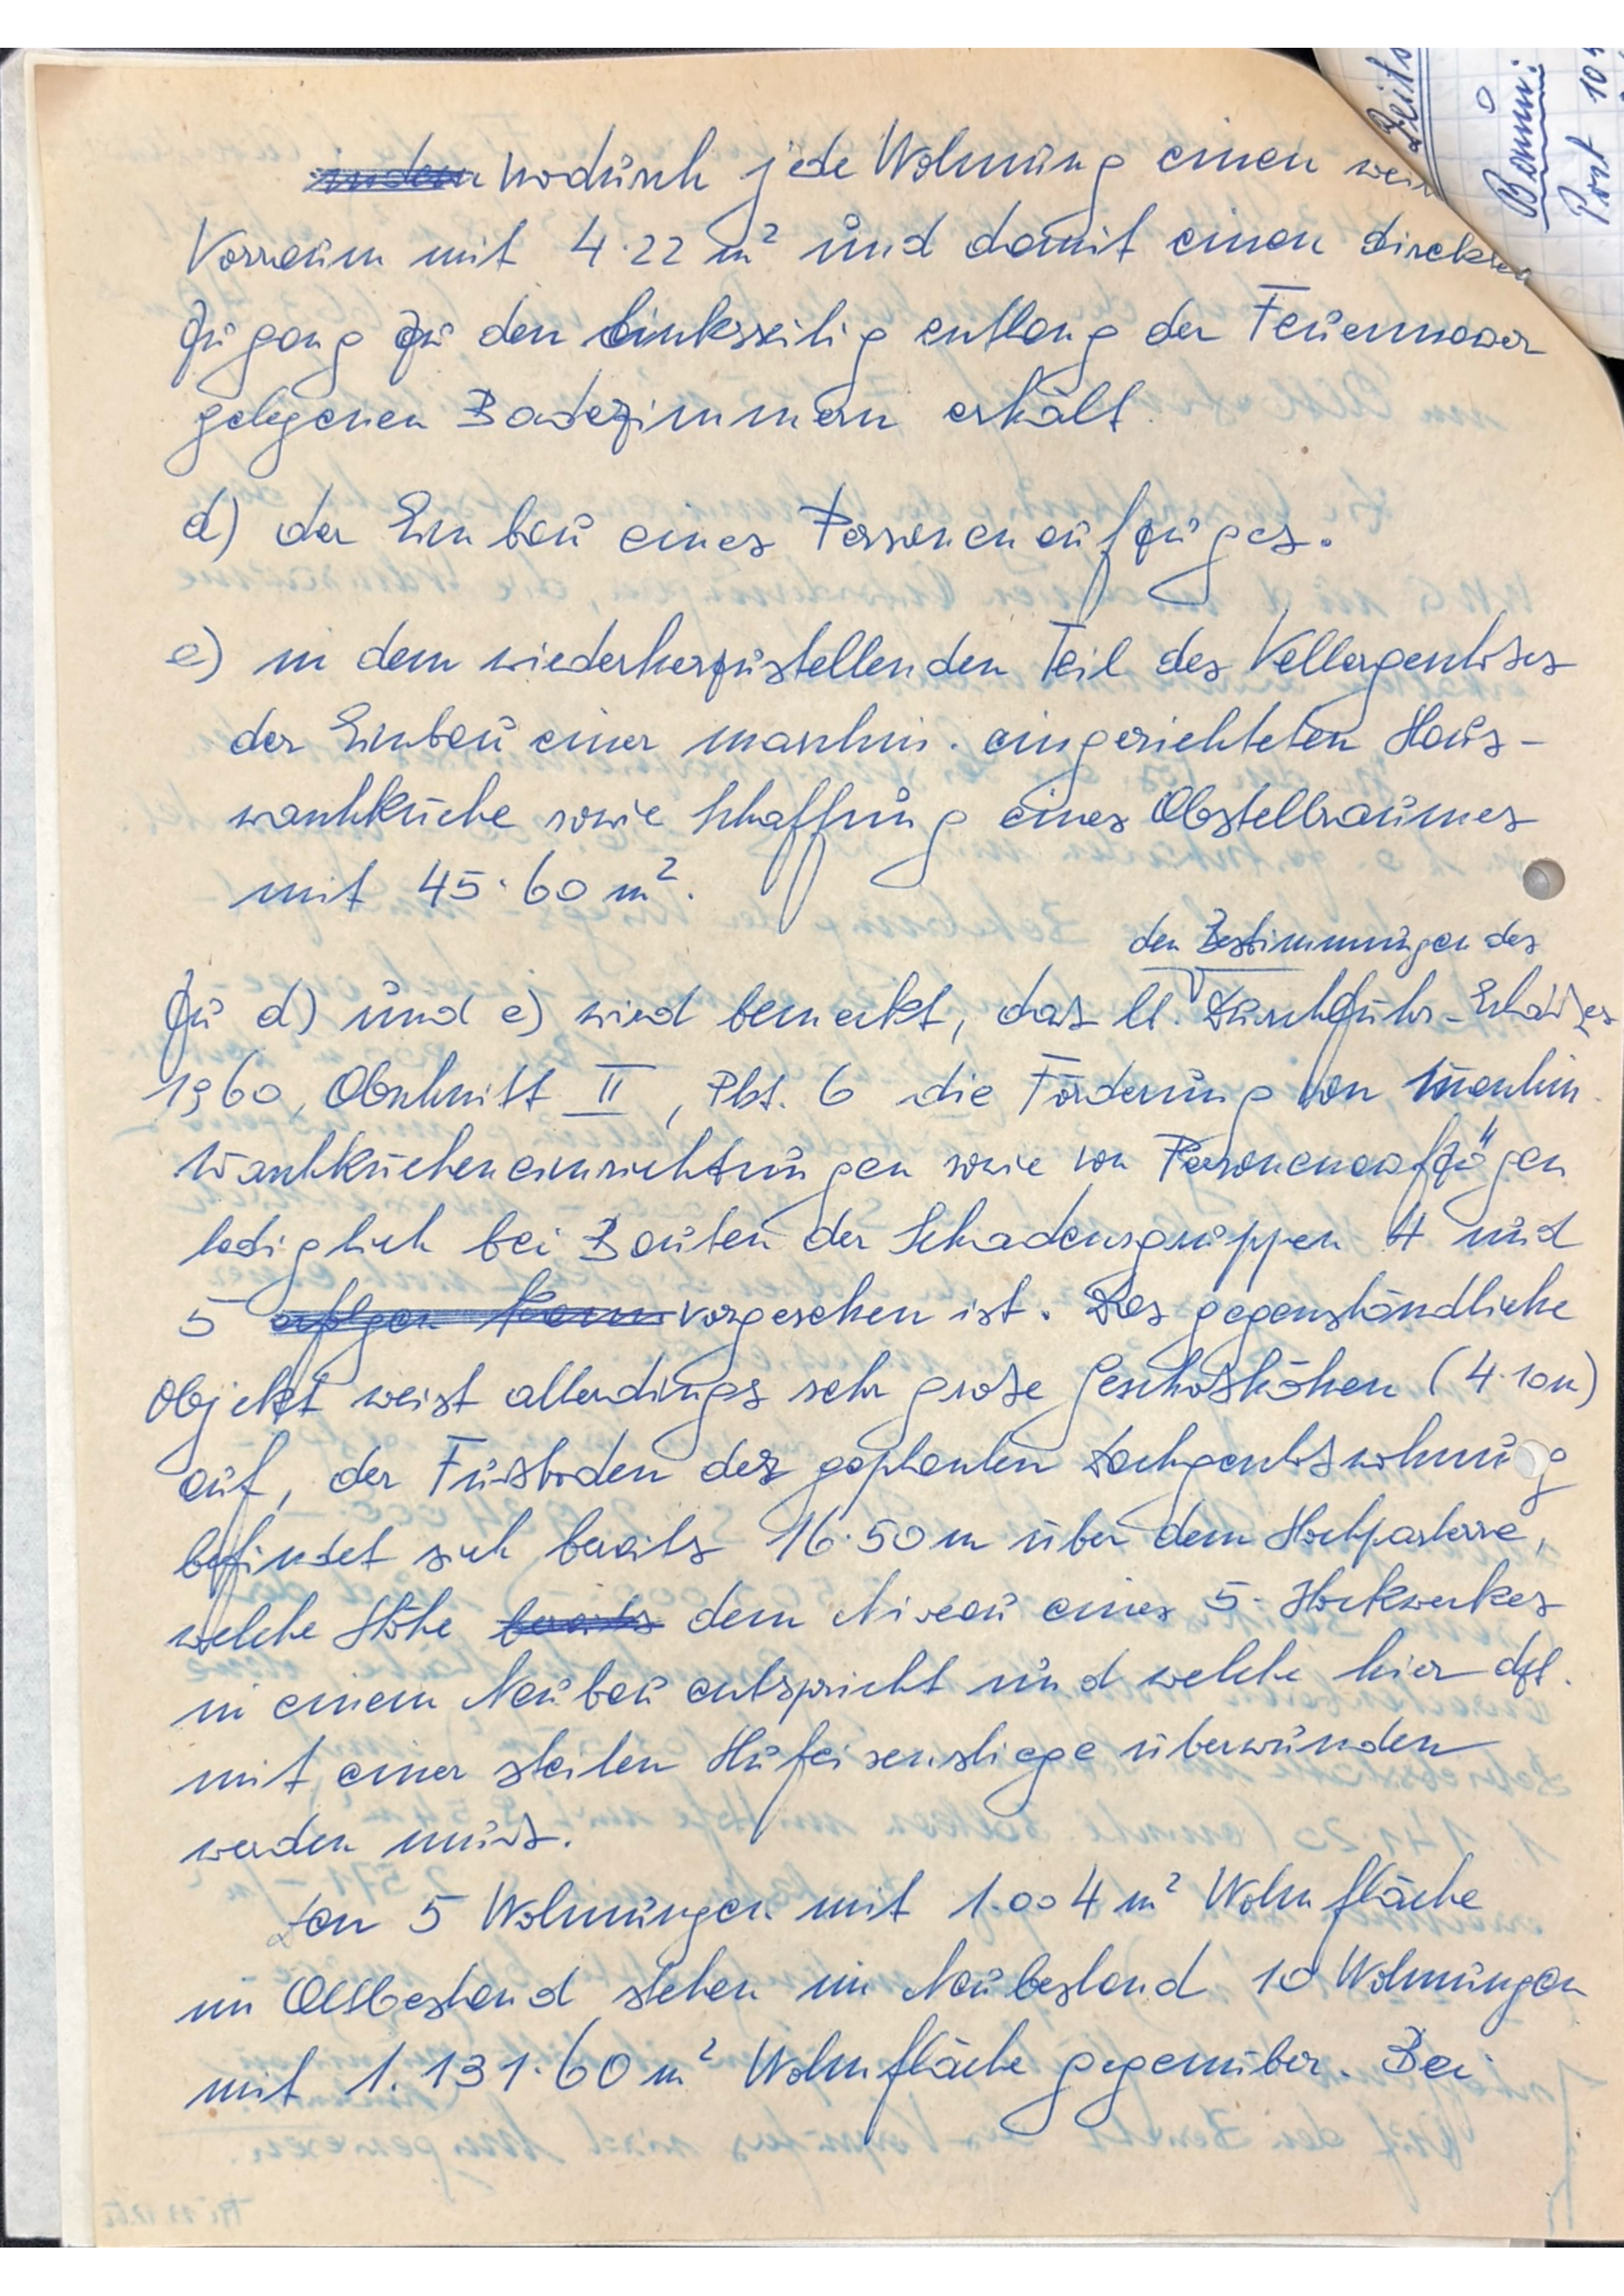 indem wodurch jede Wohnung einen
Vorraum mit 4.22 m² und damit einen direkten
Zugang zu den linksseitig entlang der Feuermauer
gelegenen Badezimmern erhält.
d) der Einbau eines Personenaufzuges.
e) in dem wiederherzustellenden Teil des Kellergeschoßes
der Einbau einer maschin. eingerichteten Haus-
waschküche sowie Schaffung eines Abstellraumes
mit 45.60 m².
den Bestimmungen des
Zu d) und e) wird bemerkt, das lt. Durchführ.-Erlaßes
1960, Abschnitt II, Pkt. 6 die Förderung von maschin.
Waschkücheneinrichtungen sowie von Personenaufzügen
lediglich bei Bauten der Schadensgruppen 4 und
5 erfolgen kann vorgesehen ist. Das gegenständliche
Objekt weist allerdings sehr große Geschoßhöhen (4.10m)
auf, der Fußboden der geplanten Dachgeschoßwohnung
befindet sich bereits 16.50 m über dem Hochparterre,
welche Höhe bereits dem Niveau eines 5. Stockwerkes
in einem Neubau entspricht und welche hier dzt.
mit einer steilen Hufeisenstiege überwunden
werden muß.
Den 5 Wohnungen mit 1.004 m² Wohnfläche
im Altbestand stehen im Neubestand 10 Wohnungen
mit 1.131.60 m² Wohnfläche gegenüber. Bei
Bamm:
Post 10